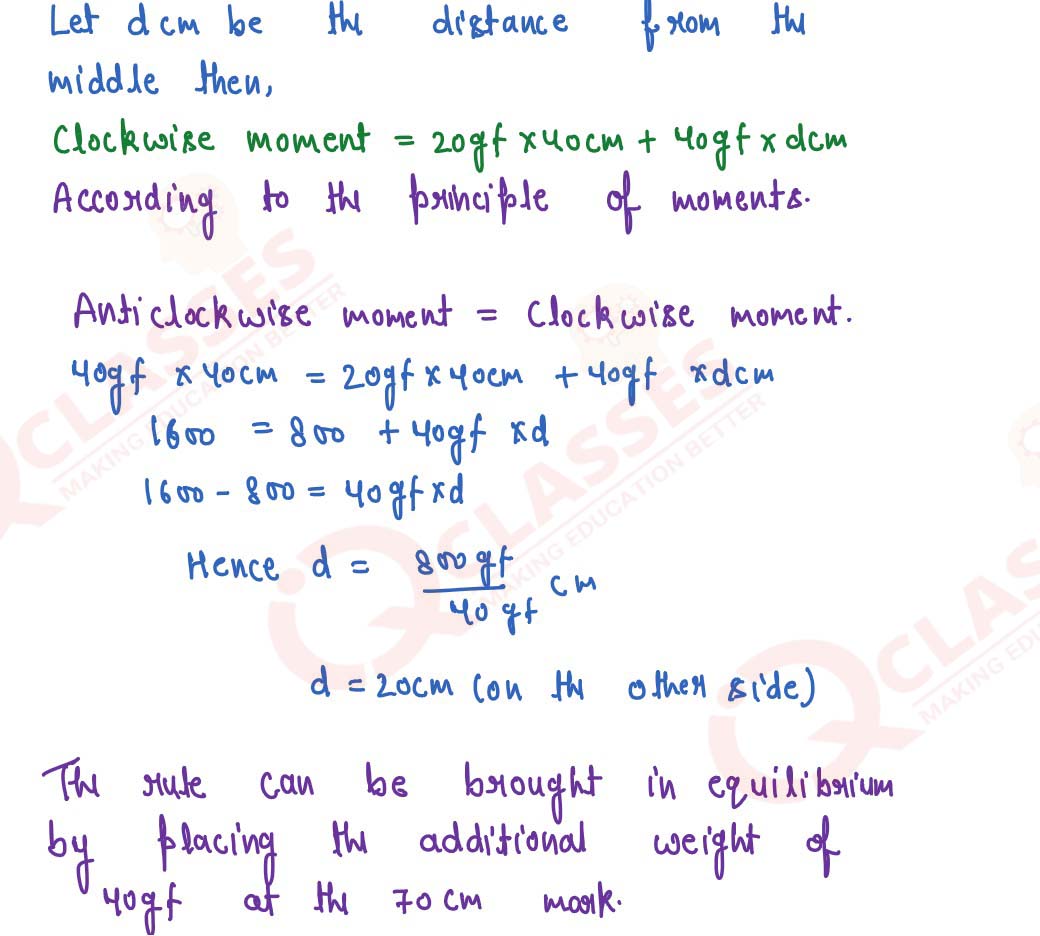 Let d cm be the distance from the
middle then,
Clockwise moment = 20gf x 40cm + 40gf x dcm
According to the principle of moments.
Anticlockwise moment = Clockwise moment.
40gf x 40cm = 20gf x 40cm + 40gf x dcm
1600 = 800 + 40gf x d
1600 - 800 = 40gf x d
Hence d = 800 gf / 40 gf cm
d = 20cm (on the other side)
The rule can be brought in equilibrium
by placing the additional weight of
40gf at the 70 cm mark.
CLASSES
MAKING EDUCATION BETTER
iQ CLASSES
MAKING EDUCATION BETTER
iQ CLAS
MAKING EDU